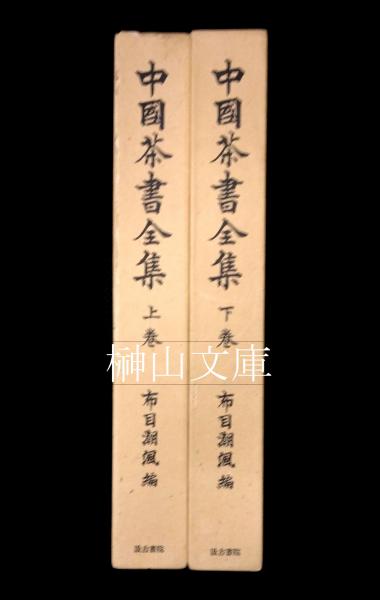 中國茶書全集
上巻
布目潮渢編
汲古書院
中國茶書全集
下巻
布目潮渢編
汲古書院
榊山文庫